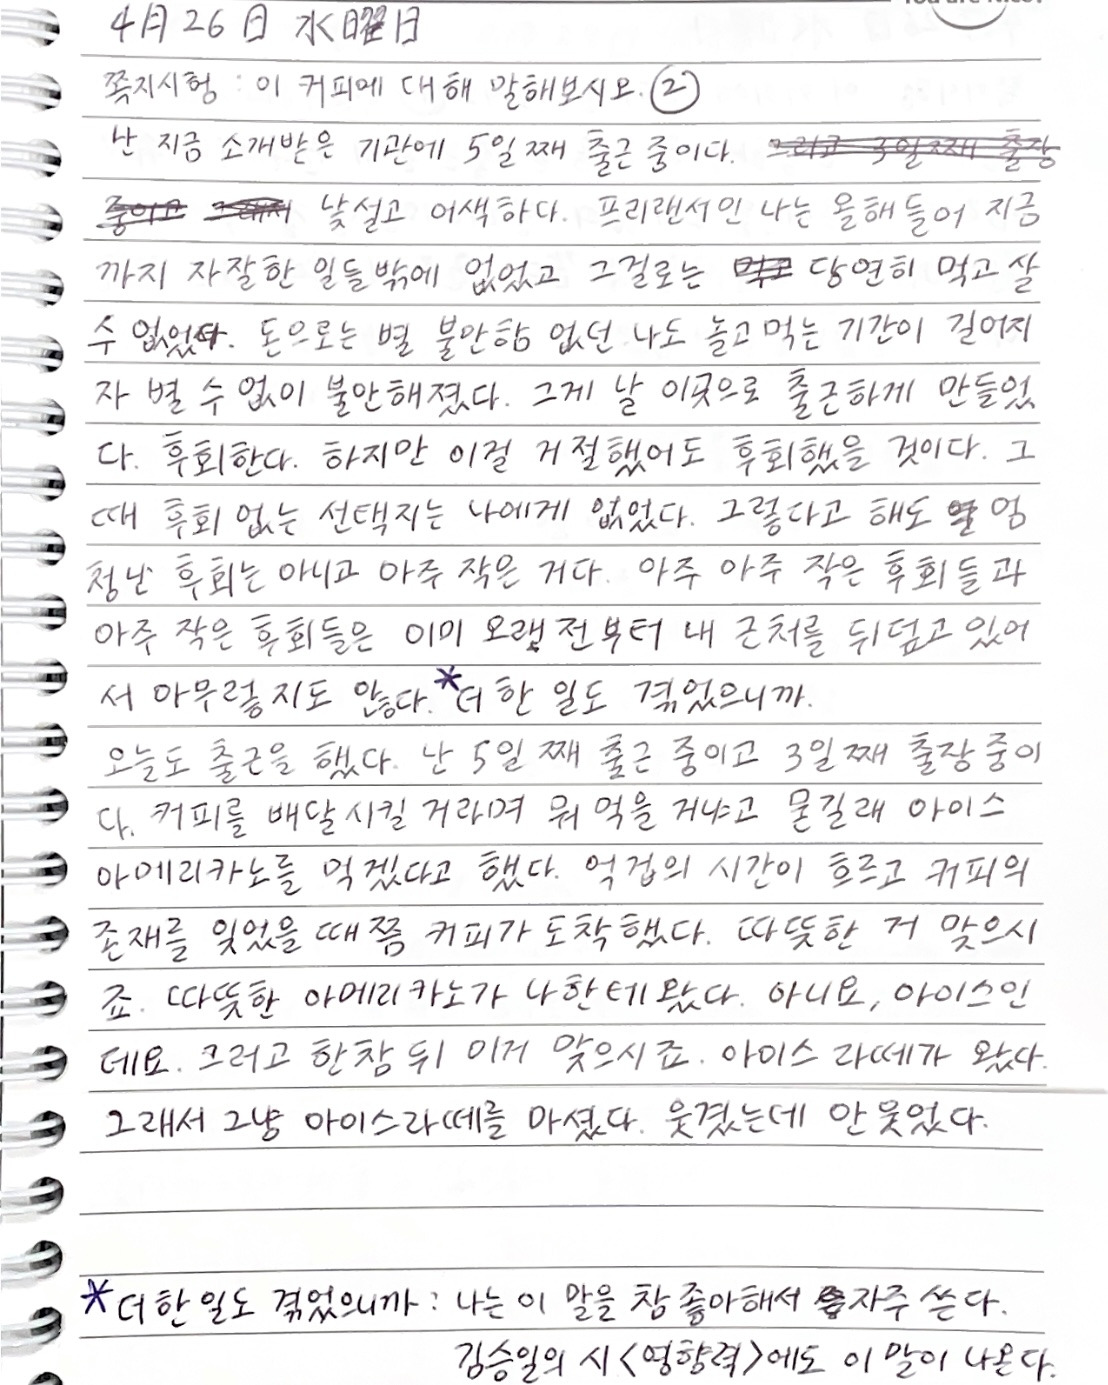 You are Nice!
4月 26日 水曜日
쪽지시험 : 이 커피에 대해 말해보시오. ②
난 지금 소개받은 기관에 5일째 출근 중이다. 그리고 3일째 출장
중이고 그래서 낯설고 어색하다. 프리랜서인 나는 올해 들어 지금
까지 자잘한 일들밖에 없었고 그걸로는 먹고 당연히 먹고 살
수 없었다. 돈으로는 별 불안함 없던 나도 놀고 먹는 기간이 길어지
자 별 수 없이 불안해졌다. 그게 날 이곳으로 출근하게 만들었
다. 후회한다. 하지만 이걸 거절했어도 후회했을 것이다. 그
때 후회 없는 선택지는 나에게 없었다. 그렇다고 해도 엄
청난 후회는 아니고 아주 작은 거다. 아주 아주 작은 후회들과
아주 작은 후회들은 이미 오랜 전부터 내 근처를 뒤덮고 있어
서 아무렇지도 않다.*더 한 일도 겪었으니까.
오늘도 출근을 했다. 난 5일 째 출근 중이고 3일 째 출장 중이
다. 커피를 배달시킬 거라며 뭐 먹을 거냐고 묻길래 아이스
아메리카노를 먹겠다고 했다. 억겁의 시간이 흐르고 커피의
존재를 잊었을 때쯤 커피가 도착했다. 따뜻한 거 맞으시
죠. 따뜻한 아메리카노가 나한테 왔다. 아니요, 아이스인
데요. 그러고 한참 뒤 이거 맞으시죠. 아이스 라떼가 왔다.
그래서 그냥 아이스라떼를 마셨다. 웃겼는데 안 웃었다.
*더 한 일도 겪었으니까 : 나는 이 말을 참 좋아해서 자주 쓴다.
김승일의 시 <영향력>에도 이 말이 나온다.